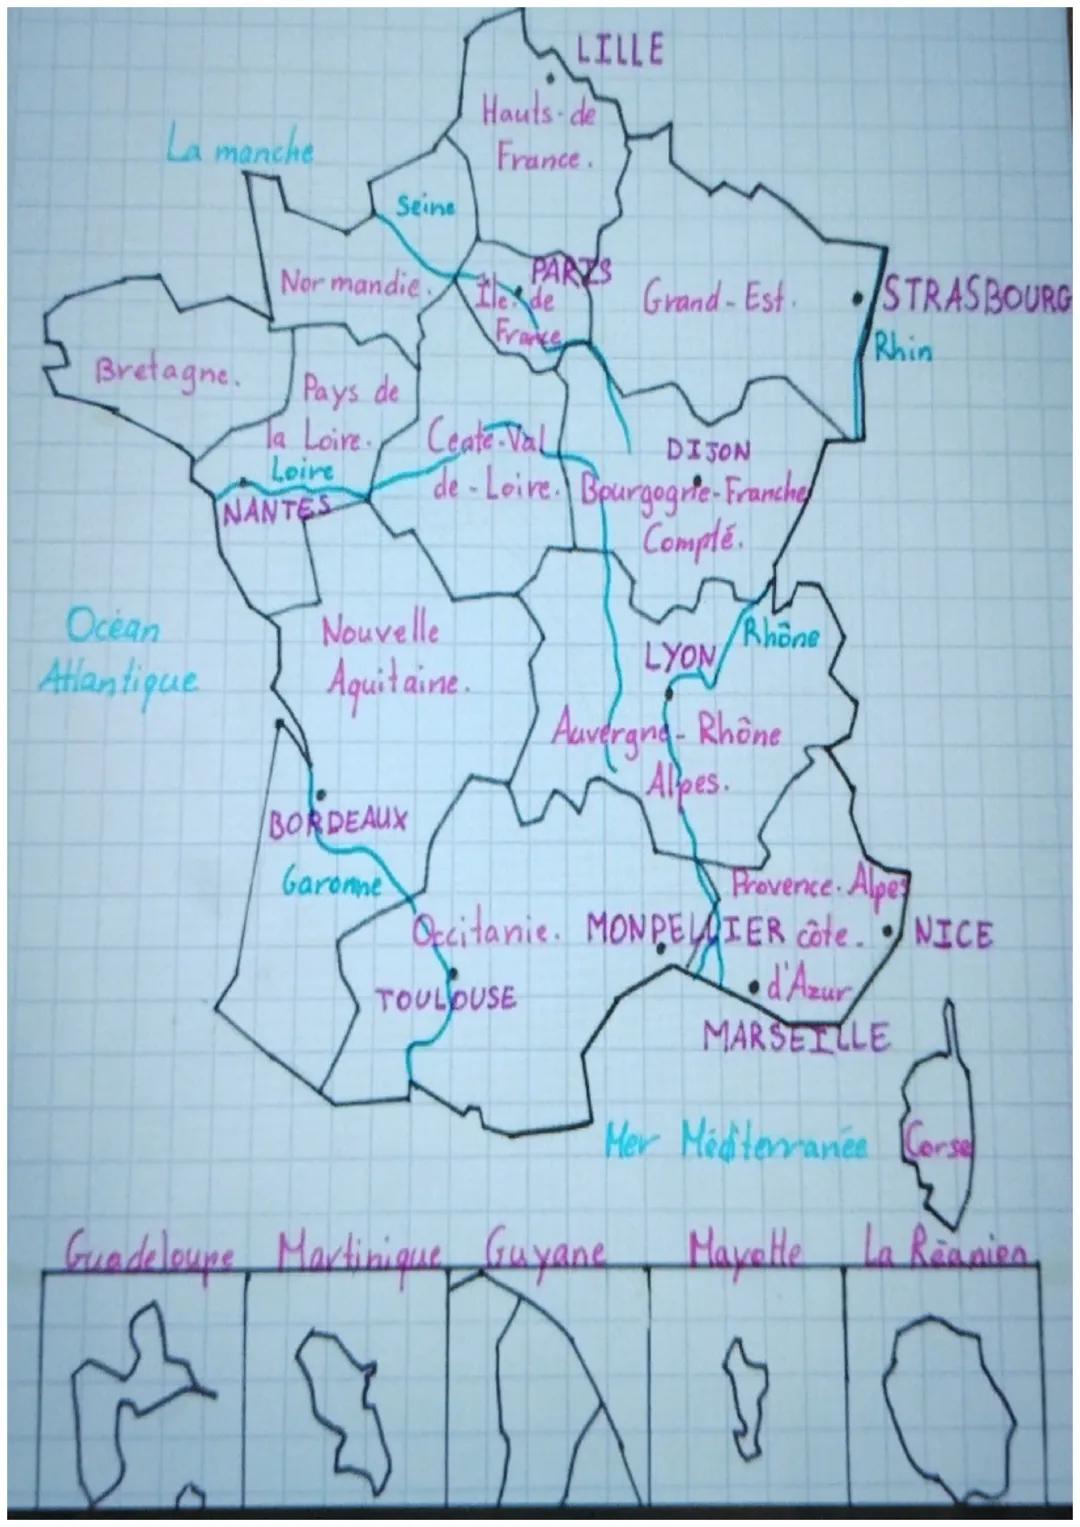 LILLE
Hauts-de
France.
La manche
Seine
PARIS
Normandie.
Île-de
France
Grand-Est.
STRASBOURG
Rhin
Bretagne.
Pays de
la Loire.
Loire
NANTES
Ceate-Val
de-Loire.
DIJON
Bourgogne-Franche
Compté.
Océan
Atlantique
Nouvelle
Aquitaine.
LYON
Rhône
Auvergne-Rhône
Alpes.
BORDEAUX
Garonne
Provence-Alpes
côte.
d'Azur
Occitanie.
MONPELLIER
NICE
TOULOUSE
MARSEILLE
Mer Méditerranée
Corse
Guadeloupe
Martinique
Guyane
Mayotte
La Réanien